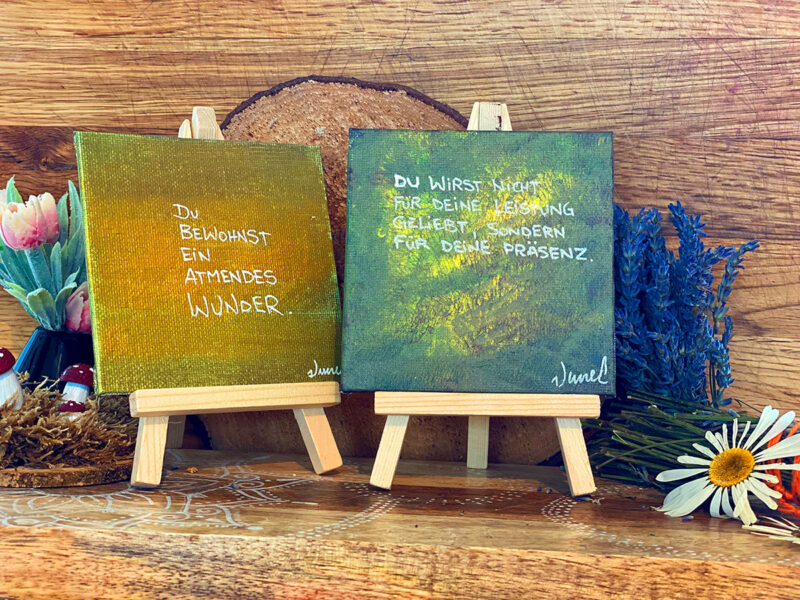 Du
BEWOHNST
EIN
ATMENDES
WUNDER.
DU WIRST NICHT
FÜR DEINE LEISTUNG
GELIEBT, SONDERN
FÜR DEINE PRÄSENZ.